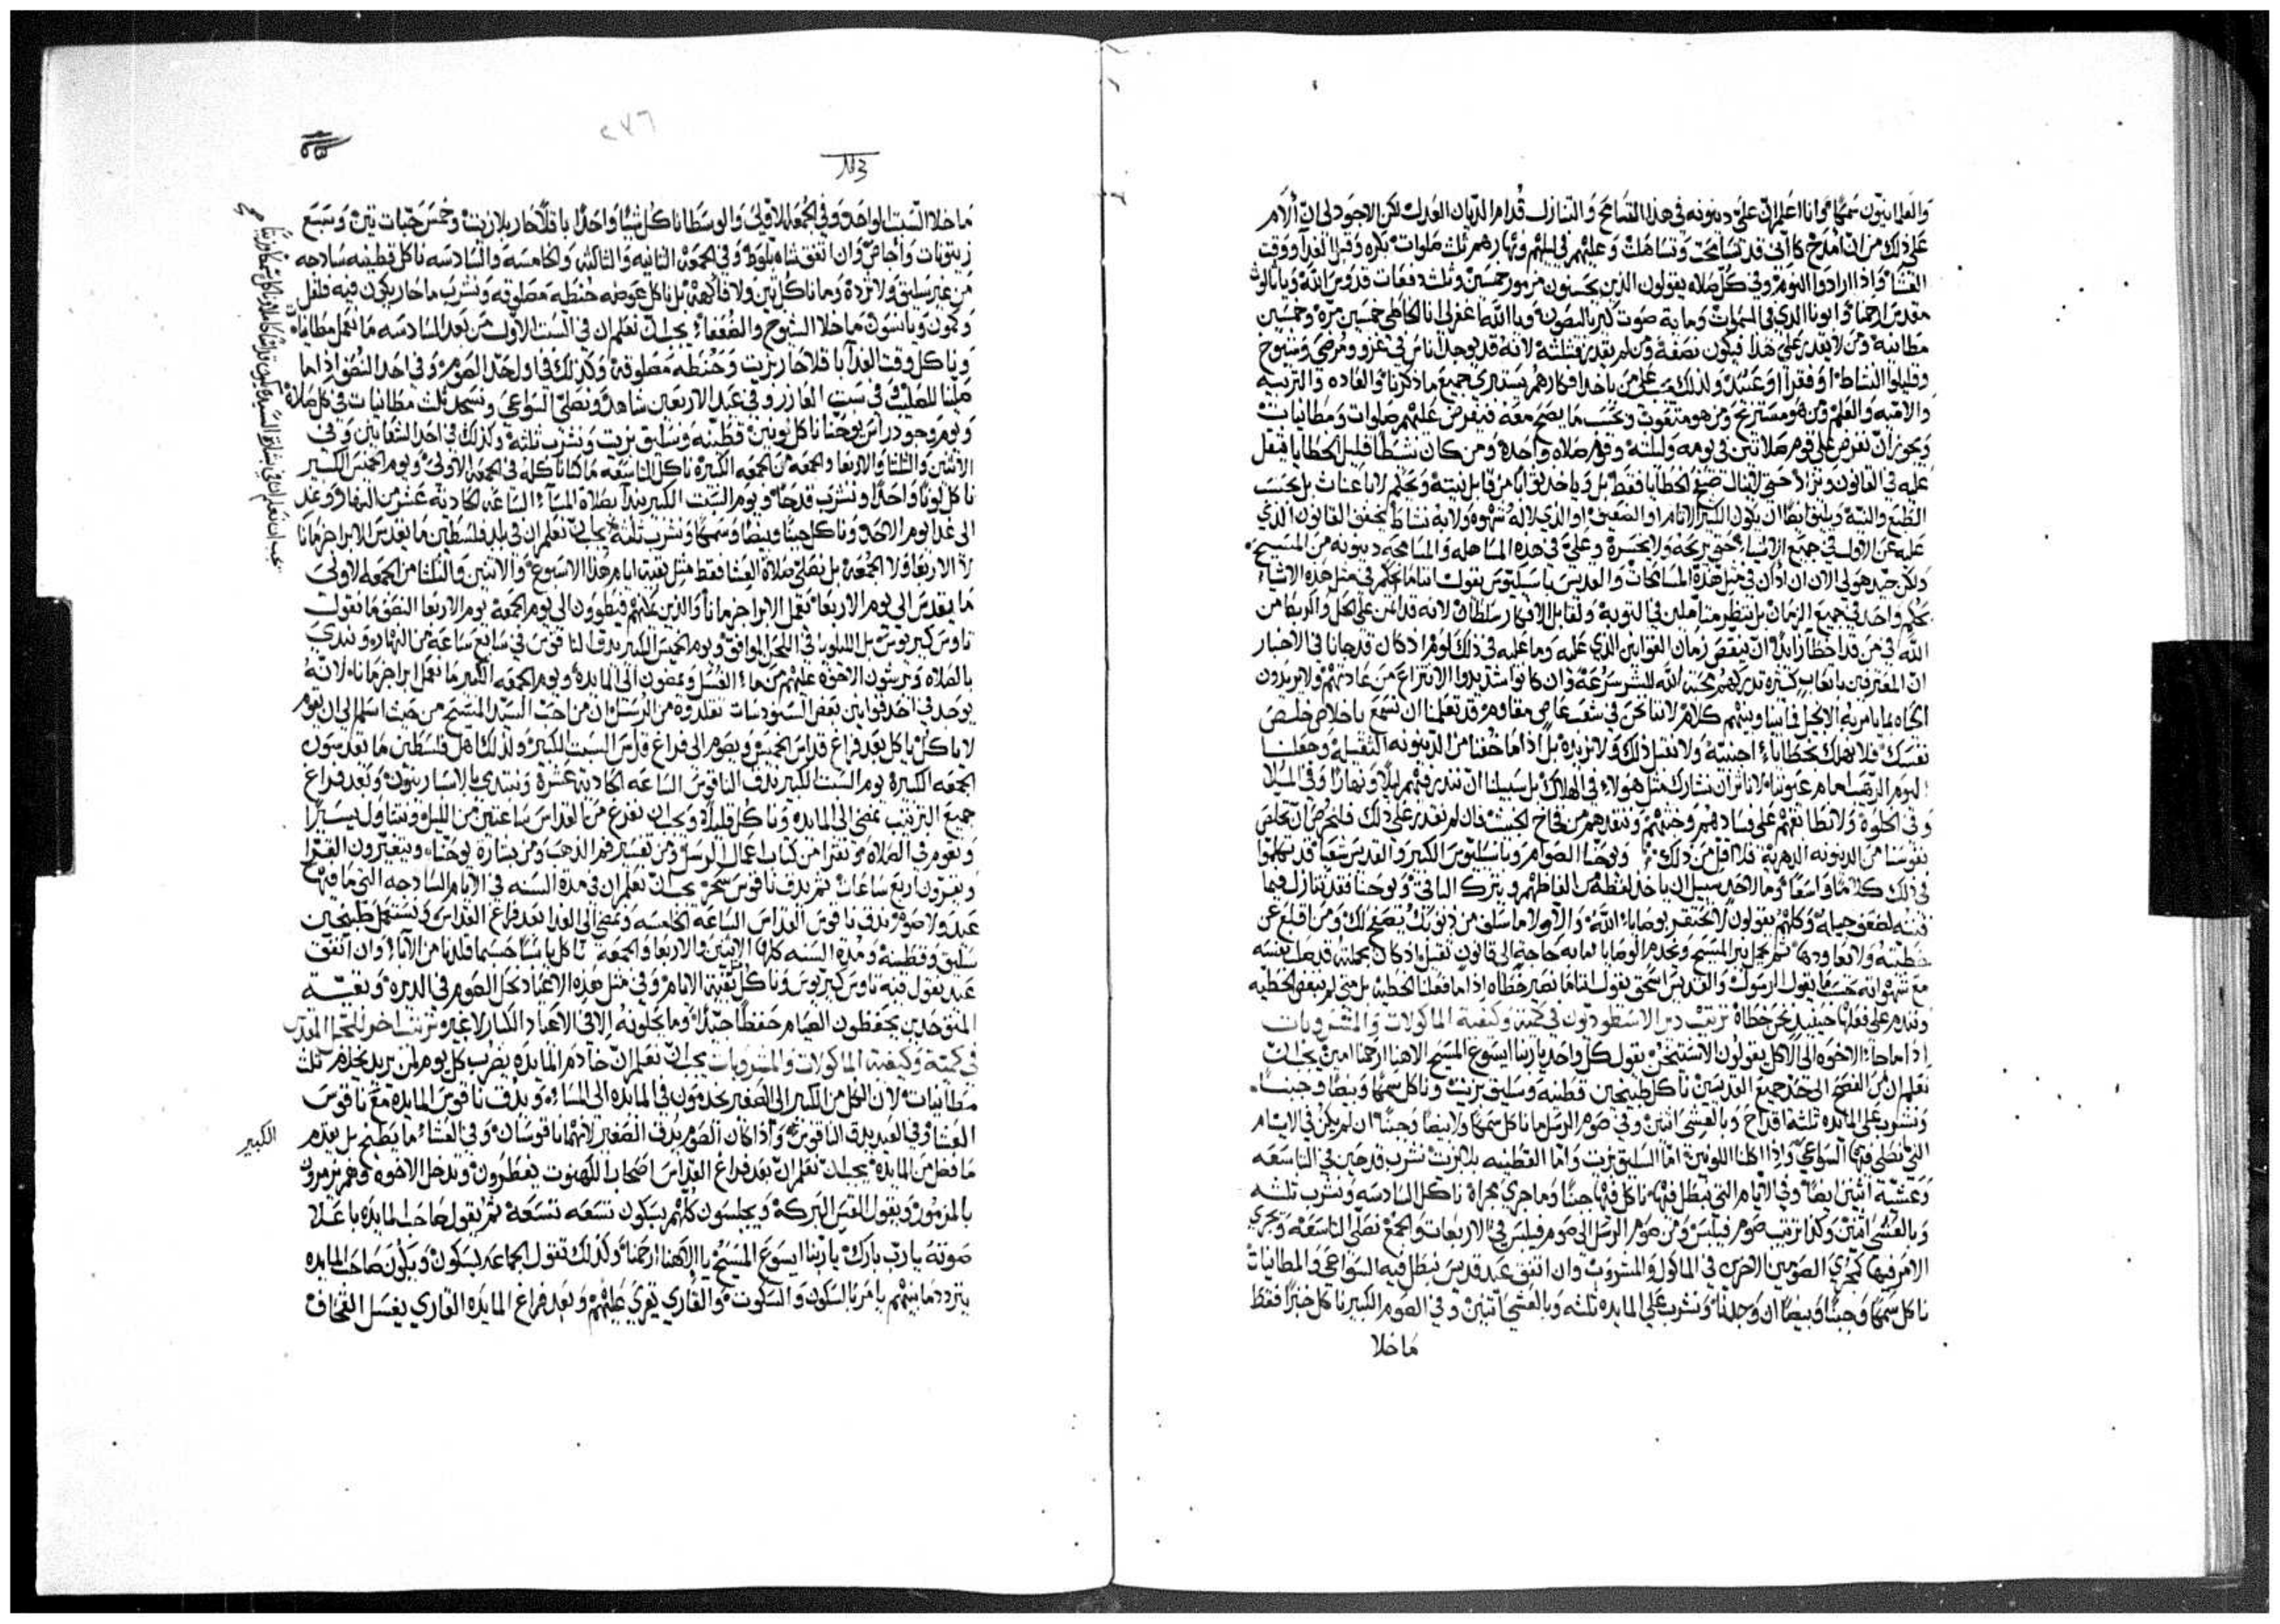 والعلمانيون سمكًا وانا اعلم ان عليّ دينونه في هذا التسامح والتنازل قدام الديان العدل لكن الاجود لي ان ألام
على ذلك من ان امدح كاني قد تسامحت وتساهلت وعليهم في ليلهم ونهارهم ثلث صلوات بكره وقبل الغدآ ووقت
العشا واذا ارادوا النوم وفي كل صلاه يقولون الذين يحسنون مزمور خمسين وثلث دفعات قدوس الله ويا ثالوث
مقدس ارحمنا وابونا الذي في السموات وماية صوت كيريالىصون ويا الله اغفر لي انا الخاطي خمسين مرة وخمسين
مطانيه ومن لا يقدر على هذا فيكون نصفه ومن لم يقدر فثلثه لانه قد يوجد اناس في غزو ومرضي وشيوخ
وقليلوا النشاط او فقرا او عبيد ولذلك على من ياخد افكارهم يستبري جميع ما ذكرنا والعاده والتربيه
والامه والعلم ومن هو مستريح ومن هو متعوب وبحسب ما يصح معه فيفرض عليهم صلوات ومطانيات
ويجوز ان نفرض على قوم صلاتين في يومه وليلته وقوم صلاه واحدة ومن كان نشطًا قليل الخطايا فيثقل
عليه في القانون ويزاد حتى لا ينال صفح الخطايا فقط بل وياخد ثوابًا من قابل نيته ونحكم لا باعنات بل بحسب
الطبع والنية ويليق ايضًا ان يكون الكثير الاثام او الضعيف او الذي لا له شهوه ولا به نشاط يخفف القانون الذي
عليه عن الاول في جميع الاشياء حتى يربحه ولا يخسره وعليّ في هذه المساهله والمسامحه دينونه من المسيح
ولكن جيد هو لي الان ان أدان في مثل هذه المسامحات والقديس باسيليوس يقول اننا ما نحكم في مثل هذه الاشياء
بحكم واحد في جميع الزمان بل ننظر متاملين في التوبة ولقابل الافكار سلطان لانه قد ائتمن على الحل والربط من
الله في من قد اخطا زايدًا ان ينقص زمان القوانين الذي عليه وما عليه في ذلك لوم اذ كان قد جانا في الاخبار
ان المعترفين باتعاب كثيره تدركهم محبة الله للبشر سرعة فان كانوا شديدوا الانتزاع من عاداتهم ولا يريدون
اتجاه لما يامر به الانجيل فما بيننا وبينهم كلام لاننا نحن في شعب عاصي مقاوم قد تعلمنا ان نسمع باخلاص خلص
نفسك فلا تهلك بخطاياء اجنبية ولا نقبل ذلك ولا نريده بل اذا ما خفنا من الدينونه الثقيله وجعلنا
اليوم الرهيب امام عيوننا لا نؤثر ان نشارك مثل هولاء في الهلاك بل سبيلنا ان نندرفهم ليلًا ونهارًا وفي الملا
وفي الخلوة ولا نطابقهم على فسادهم وخبثهم وننقدهم من فخاخ الخبيث فان لم نقدر على ذلك فلنحرص ان نخلص
نفوسنا من الدينونه الدهرية فلا اقل من ذلك ويوحنا الصوام وباسيليوس الكبير والقديس شعيا قد تكلموا
في ذلك كلامًا واسعًا وما لاحد سبيل ان ياخد لفظه من الفاظهم ويترك الباقي ويوحنا فقد تنازل فيما
فيه لضعف جيله وكلهم يقولون لا تحتقر بوصايا الله والا ولا ما سلف من ذنوبك يصفح لك ومن اقلع عن
خطيته ولا يعاودها ثم يحمل نير المسيح ويخدم الوصايا فما به حاجه الى قانون ثقيل اذ كان بجملته قد صلب نفسه
مع شهواته حسبما يقول الرسول والقديس اسحق يقول اننا ما نصير خطاه اذا ما فعلنا الخطيه بل متى لم نبغض الخطيه
ونندم على فعلها حينيد نحن خطاة ترتيب دير الاسطوديون في كمية وكيفية الماكولات والمشروبات
اذا ما جا الاخوه الى الاكل يقولون الاستيخن يقول كل واحد يا ربنا ايسوع المسيح الاهنا ارحمنا امين يجب ان
نعلم ان من الفصح الى حد جميع القديسين ناكل طبيخين قطنيه وسليق بزيت وناكل سمكًا وبيضًا وجبنًا
ونشرب على المايده ثلثة اقداح وبالعشي اثنين وفي صوم الرسل ما ناكل سمكًا ولا بيضًا وجبنًا ان لم يكن في الايام
التي نصلي فيها السواعي واذا اكلنا اللونين امّا السليق بزيت وامّا القطنيه بلا زيت نشرب قدحين في التاسعه
وعشية اثنين ايضًا وفي الايام التي نبطل فيها ناكل فيها جبنًا وما جري مجراه ناكل السادسه ونشرب ثلثه
وبالعشي اثنين وكذا ترتيب صوم فيلبس ومن صوم الرسل الى صوم فيلبس في الاربعات والجمع نصلي التاسعه ويجري
الامر فيها كمجري الصومين الاخرين في الماكول والمشروب وان اتفق عيد قديس نبطل فيه السواعي والمطانيات
ناكل سمكًا وجبنًا وبيضًا ان وجدنا ونشرب على المايده ثلثه وبالعشي اثنين وفي الصوم الكبير ناكل خبزًا فقط
ما خلا
٢٧٦
ما خلا السبت الواحد وفي الجمعة الاولي والوسطا ناكل شيًا واحدًا باقلا حار بلا زيت وخمس حبات تين وسبع
زيتونات واجاص وان اتفق شاه بلوط وفي الجمعة الثانيه والثالثه والخامسه والسادسه ناكل قطنيه سادجه
من غير سليق ولا بزدة وما ناكل تين ولا فاكهة بل ناكل عوضه حنطه مصلوقه ونشرب ما حار يكون فيه فلفل
وكمون ويانسون ما خلا الشيوخ والضعفا يجب ان نعلم ان في السبت الاول من بعد السادسه ما نعمل مطانيات
وناكل وقت الغدآ باقلا حار بزيت وحنطه مصلوقة وكذلك في اول حد الصوم وفي احد النصف اذا ما
صلينا للصليب وفي سبت العازر وفي عيد الاربعين شاهد ونصلي السواعي ونسجد ثلث مطانيات في كل صلاة
ويوم وجود راس يوحنا ناكل لونين قطنيه وسليق بزيت ونشرب ثلثه وكذلك في احد الشعانين وفي
الاثنين والثلثا والاربعا والجمعه من الجمعه الكبيره ناكل التاسعه ما كنا ناكله في الجمعه الاولي ويوم الخميس الكبير
ناكل لونًا واحدًا ونشرب قدحًا ويوم السبت الكبير نبدا بصلاة المسآء الساعه الحادية عشر من النهار ونعيد
الى غدا يوم الاحد وناكل جبنًا وبيضًا وسمكًا ونشرب ثلثه يجب ان نعلم ان في بلد فلسطين ما يقدس للابراجزمانا
لا الاربعا ولا الجمعة بل نصلي صلاة العشا فقط مثل بقية ايام هذا الاسبوع والاثنين والثلثا من الجمعه الاولي
ما يقدس الى يوم الاربعا نعمل الابراجزمانا والذين يمكنهم فيطوون الى يوم الجمعة يوم الاربعا النصف ما نقول
ثاوس كيريوس بل الليلويا في اللحن الموافق ويوم الخميس الكبير يدق الناقوس في سابع ساعة من النهار ونبتدي
بالصلاه ويرشون الاخوة عليهم من ماء الغسل ويمضون الى المايدة ويوم الجمعه الكبير ما نعمل ابراجزمانا لانه
يوجد في احد قوانين بعض السنودسات تقلدوه من الرسل ان من احب السيد المسيح من حيث اسلم الى ان يقوم
لا ياكل بل ياكل بعد فراغ قداس الخميس ويصوم الى فراغ قداس السبت الكبير ولذلك اهل فلسطين ما يقدسون
الجمعه الكبيرة يوم السبت الكبير يدق الناقوس الساعه الحادية عشرة ونبتدي بالاسبارينون وبعد فراغ
جميع الترتيب نمضي الى المايده وناكل قليلًا ويجب ان نفرغ من القداس ساعتين من الليل ونتناول يسيرًا
ونقوم في الصلاه ثم نقرا من كتاب اعمال الرسل ومن تفسير فم الذهب ومن بشارة يوحنا ويتغيرون القرا
ويقرون اربع ساعات ثم يدق ناقوس سحره يجب ان نعلم ان في مدة السنه في الايام السادجه التي ما فيها
عيد ولا صوم يدق ناقوس القداس الساعة الخامسه ونمضي الى الغدا بعد فراغ القداس ونستعمل طبيخين
سليق وقطنيه ومدة السنه كلها الاثنين والاربعا والجمعه ناكل يابسًا حسبما قلدنا من الآباء وان اتفق
عيد يقول فيه ثاوس كيريوس وناكل كبقية الايام وفي مثل هذه الاعياد نحل الصوم في الديره وبقية
المتوحدين يحفظون الصيام حفظًا جيدًا وما يحلونه الا في الاعياد الكبار لا غير ترتيب اخر للجبل المقدس
في كمية وكيفية الماكولات والمشروبات يجب ان نعلم ان خادم المايده يضرب كل يوم لمن يريد يخدم ثلث
مطانيات لان الكل من الكبير الى الصغير يخدمون في المايده الى المساء ويدق ناقوس المايده مع ناقوس
العشا وفي العيد يدق الناقوس الكبير واذا كان الصوم يدق الصغير لانهما ناقوسان وفي العشاء ما يطبخ بل يقدم
ما فضل من المايدة يجب ان نعلم ان بعد فراغ القداس اصحاب الكهنوت يفطرون وتدخل الاخوة وهم يزمرون
بالمزمور ويقول القس البركة ويجلسون كلهم بسكون تسعه تسعة ثم يقول صاحب المايده باعلا
صوته يا رب بارك يا ربنا ايسوع المسيح يا الاهنا ارحمنا وكذلك تقول الجماعه بسكون ويكون صاحب المايده
يتردد ما بينهم يامر بالسكون والسكوت والقاري يقري عليهم وبعد فراغ المايده القاري يغسل القحاف